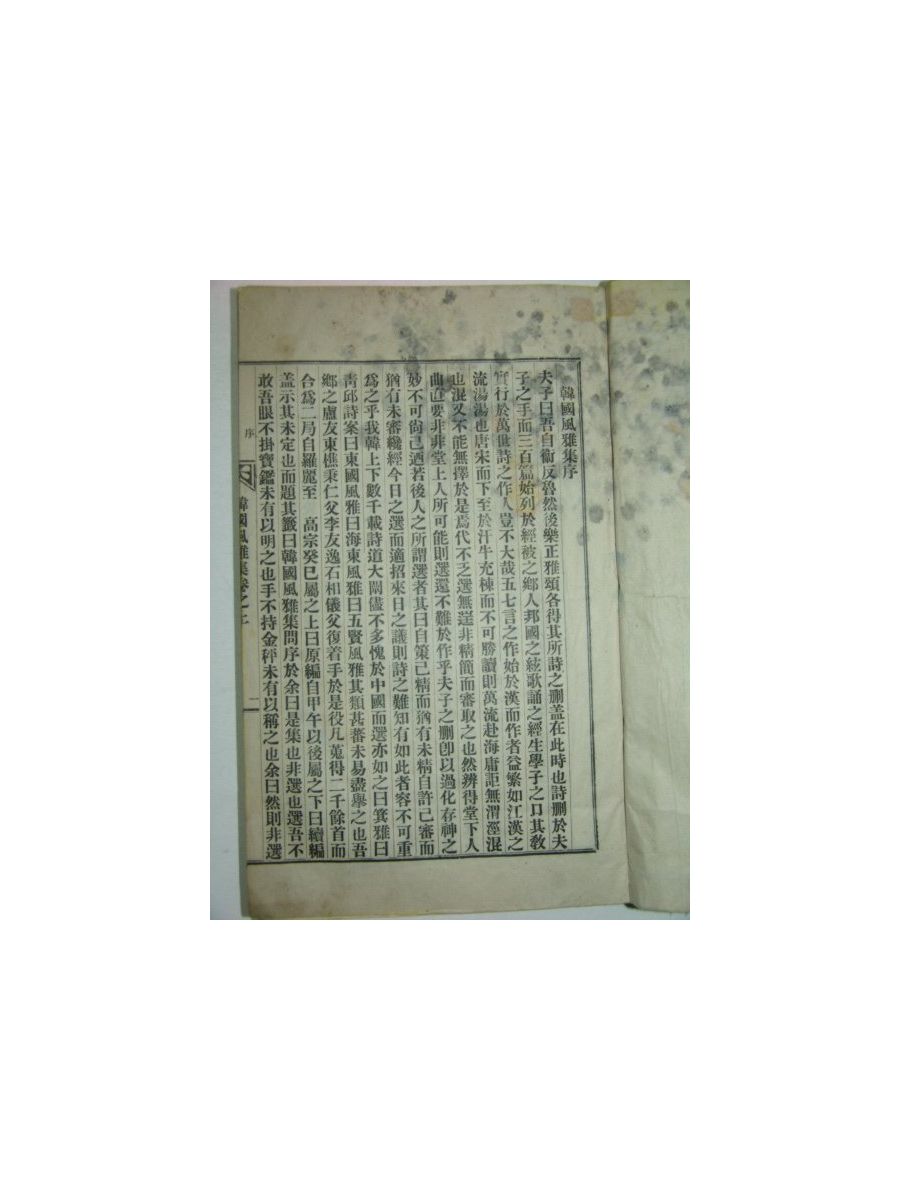 韓國風雅集序
夫子曰吾自衛反魯然後樂正雅頌各得其所詩之刪盖在此時也詩刪於夫
子之手而三百篇始列於經被之鄉人邦國之絃歌誦之經生學子之口其敎
實行於萬世詩之作人豈不大哉五七言之作始於漢而作者益繁如江漢之
流湯湯也唐宋而下至於汗牛充棟而不可勝讀則萬流赴海庸詎無渭涇混
也混又不能無擇於是爲代不乏選無非精簡而審取之也然辨得堂下人
曲直要非非堂上人所可能則選還不難於作乎夫子之刪卽以過化存神之
妙不可尙已洒若後人之所謂選者其曰自策已精而猶有未精自許已審而
猶有未審纔經今日之選而適招來日之議則詩之難知有如此者容不可重
爲之乎我韓上下數千載詩道大闡儘不多愧於中國而選亦如之曰箕雅曰
靑邱詩案曰東國風雅曰海東風雅曰五賢風雅其類甚蕃未易盡擧之也吾
鄉之盧友東樵秉仁父李友逸石相儀父復着手於是役凡蒐得二千餘首而
合爲二局自羅麗至 高宗癸巳屬之上曰原編自甲午以後屬之下曰續編
盖示其未定也而題其籤曰韓國風雅集問序於余曰是集也非選也選吾不
敢吾眼不掛寶鑑未有以明之也手不持金秤未有以稱之也余曰然則非選
序
韓國風雅集卷之上
一